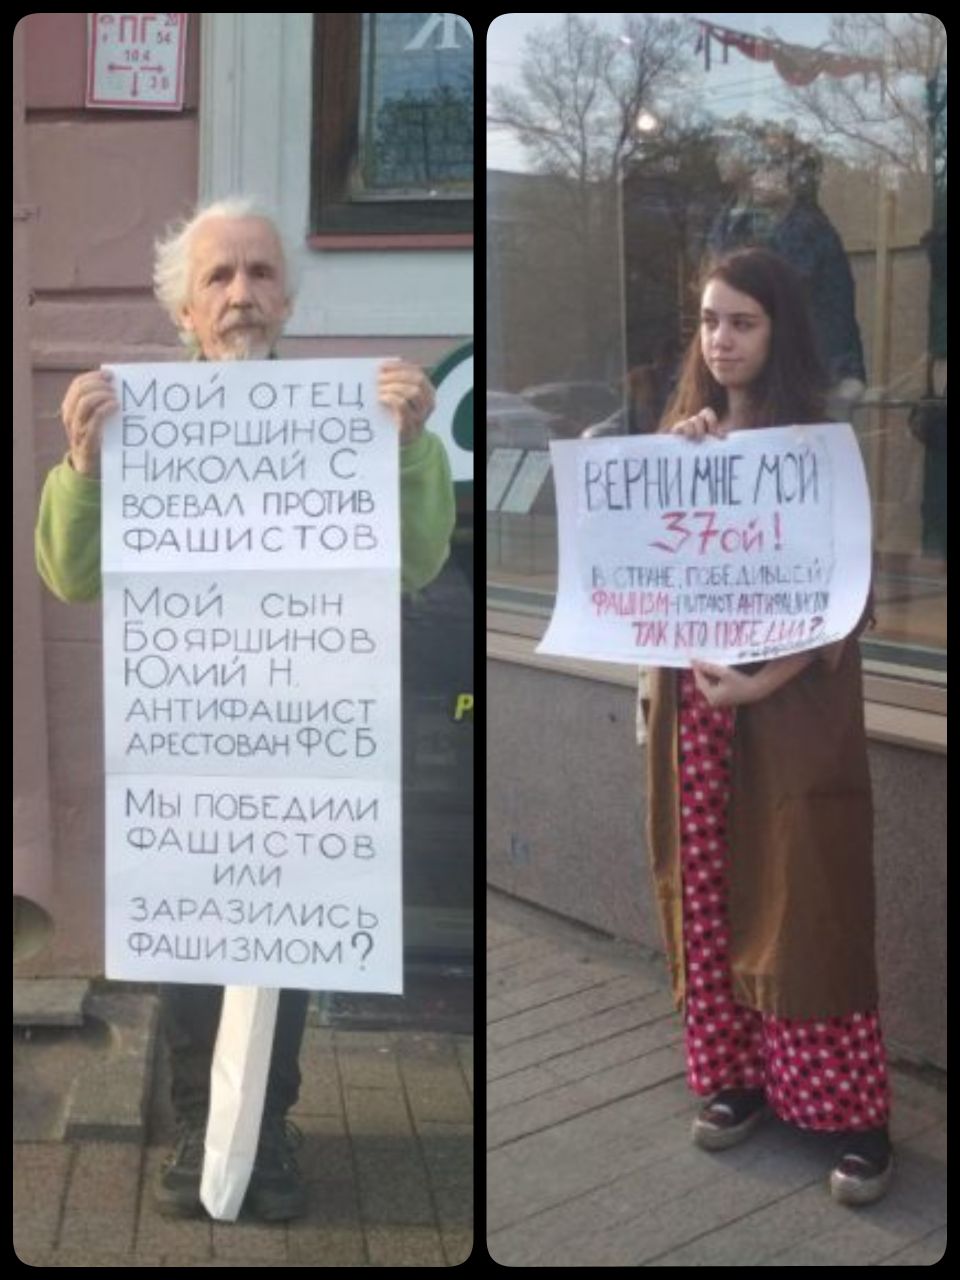 ПГ 20
54
10.4
3.8
Ж
МОЙ ОТЕЦ
БОЯРШИНОВ
НИКОЛАЙ С.
ВОЕВАЛ ПРОТИВ
ФАШИСТОВ
МОЙ СЫН
БОЯРШИНОВ
ЮЛИЙ Н.
АНТИФАШИСТ
АРЕСТОВАН ФСБ
МЫ ПОБЕДИЛИ
ФАШИСТОВ
ИЛИ
ЗАРАЗИЛИСЬ
ФАШИЗМОМ?
ВЕРНИ МНЕ МОЙ
37ой!
В СТРАНЕ, ПОБЕДИВШЕЙ
ФАШИЗМ - ПЫТАЮТ АНТИФАШИСТОВ
ТАК КТО ПОБЕДИЛ?